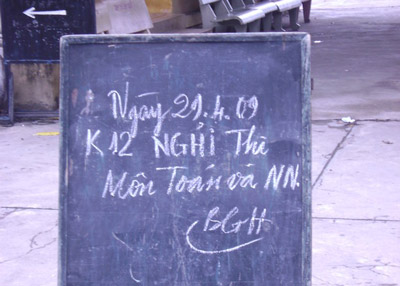 Ngày 29.4.09
K12 NGHỈ Thi
Môn Toán và NN.
BGH